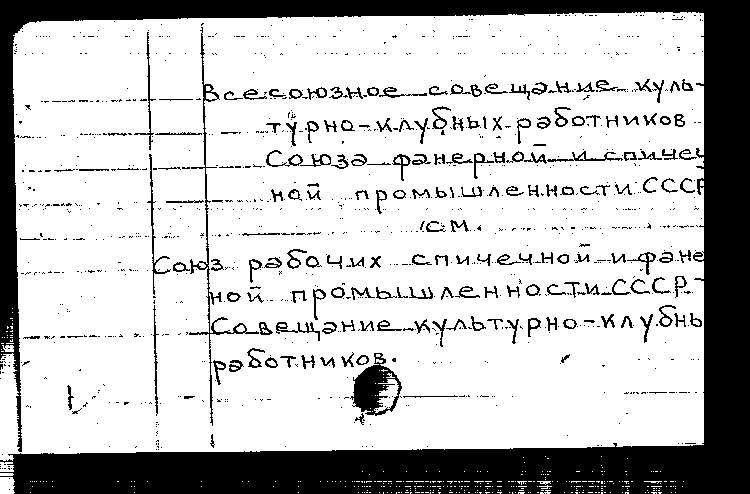 Всесоюзное совещание куль-
турно-клубных работников
Союза фанерной и спичеч
ной промышленности СССР
см.
Союз рабочих спичечной и фане
ной промышленности СССР.
Совещание культурно-клубны
работников.